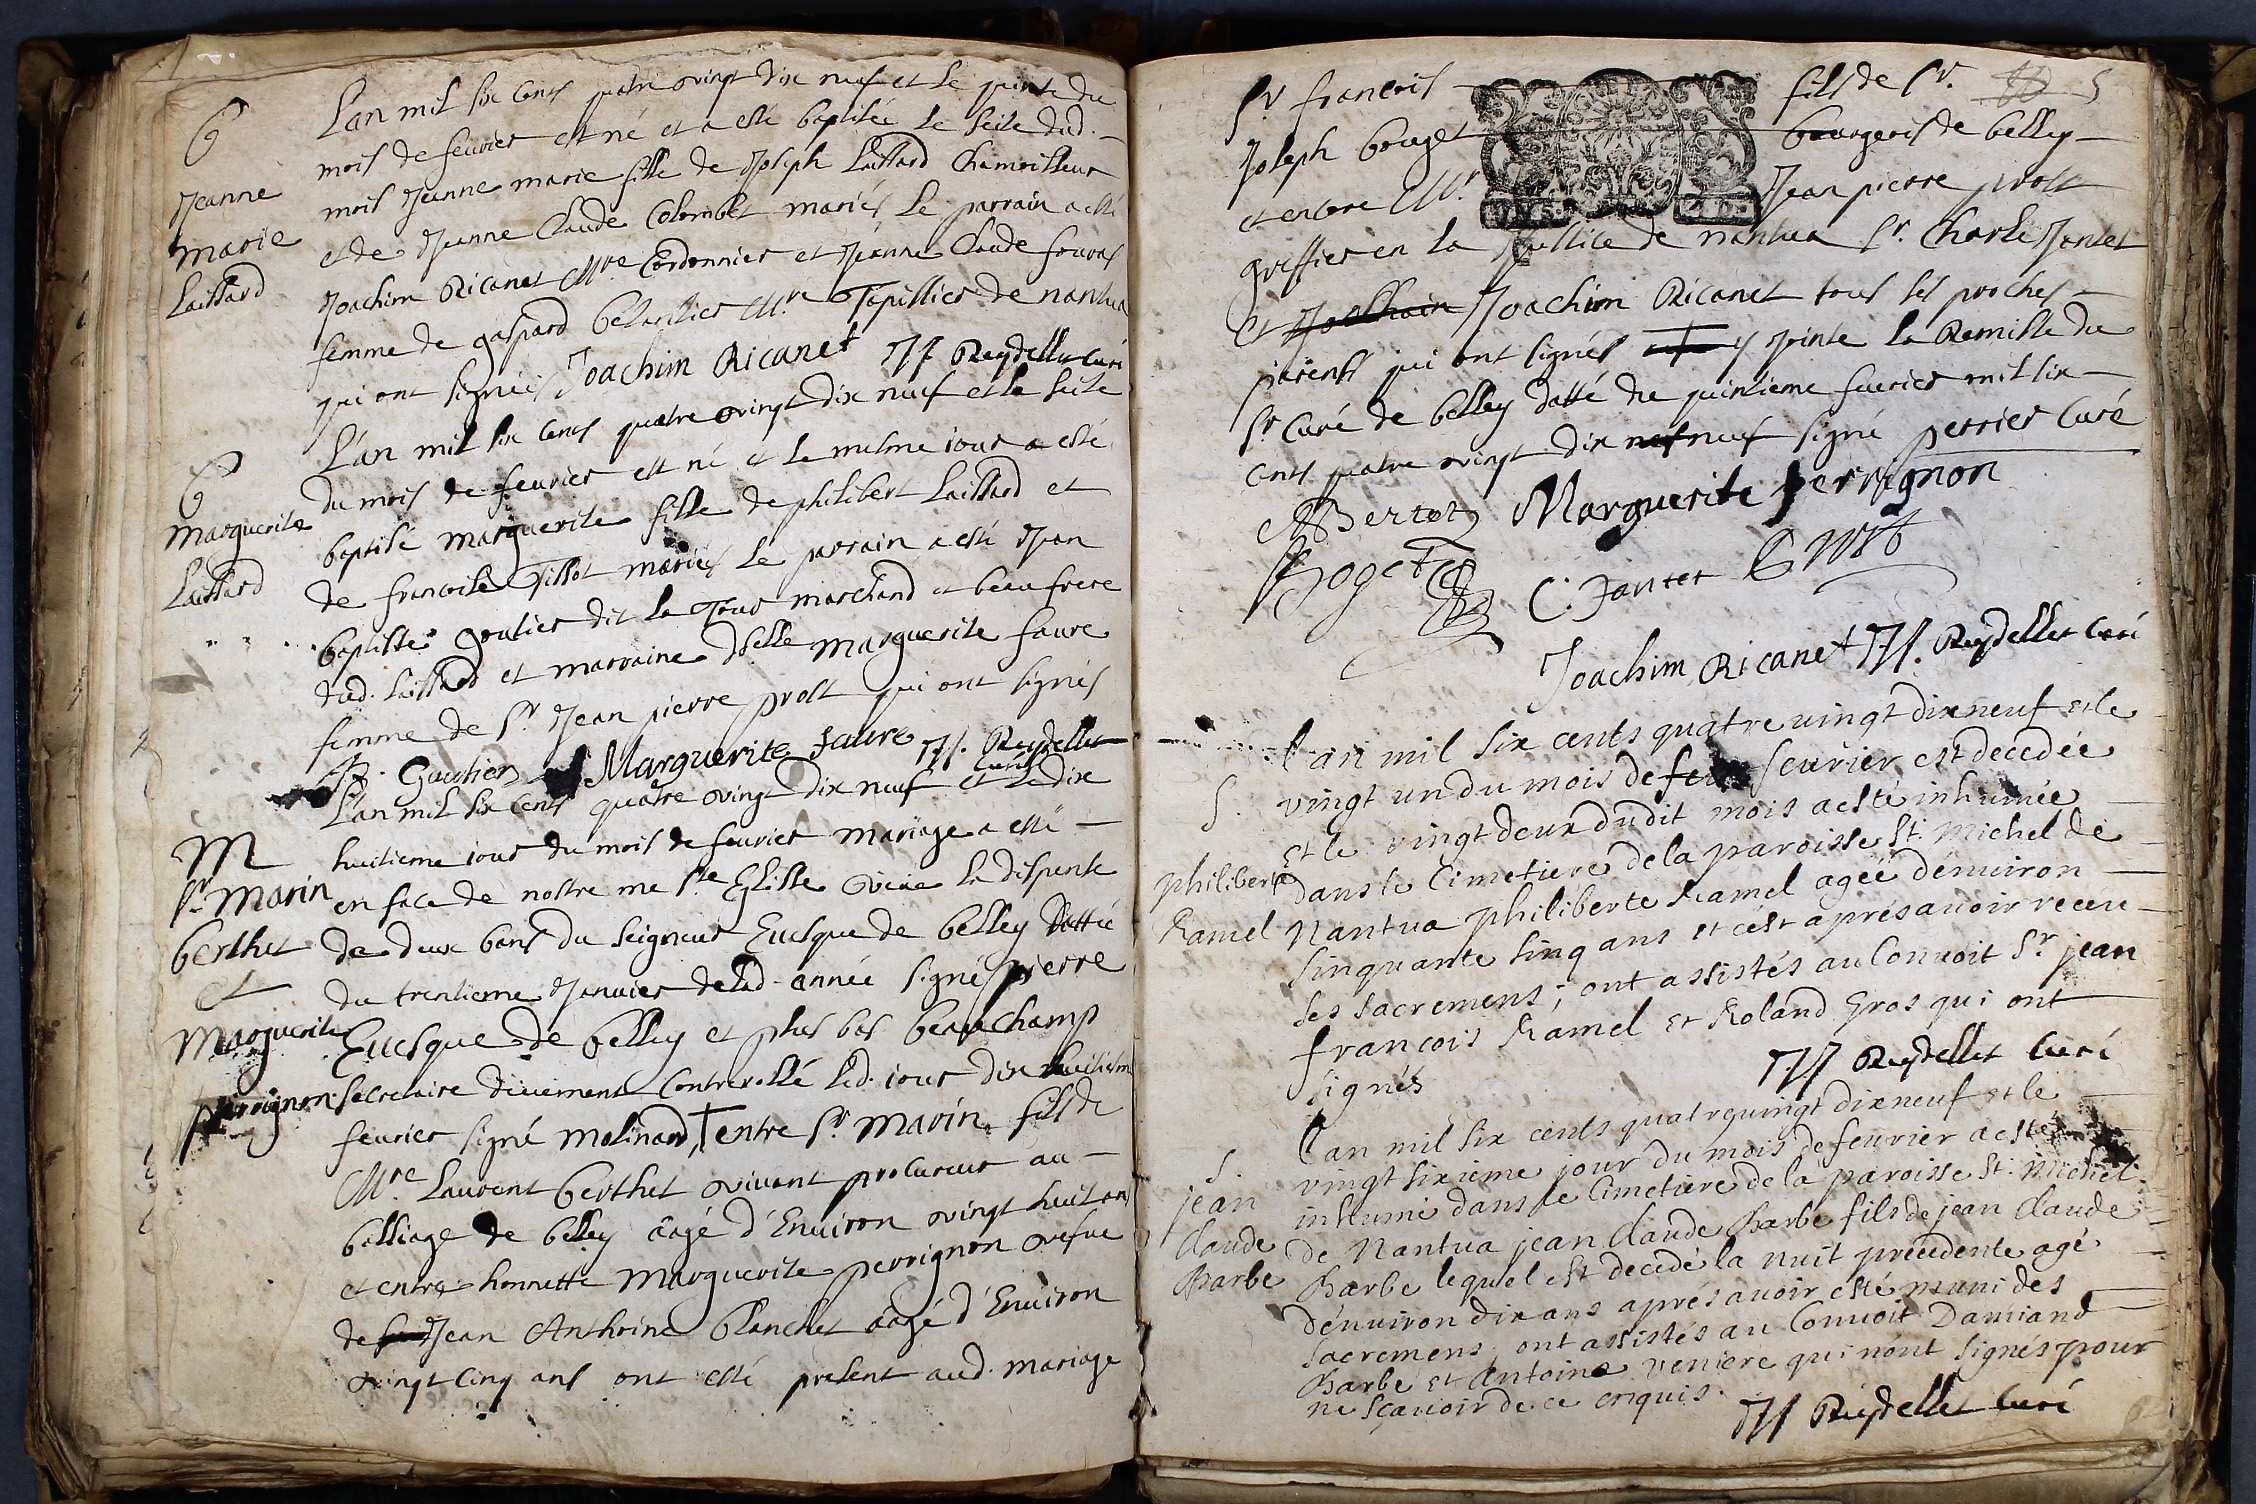 B
Jeanne
marie
Laissard
L'an mil six cents quatre vingt dix neuf et le quinze du
mois de feuvrier est né et a esté baptisée le seize dud.
mois Jeanne marie fille de Joseph Laissard Chamoisseur
et de Jeanne Claude Colombet mariés le parrain a esté
Joachim Ricanet Mre Cordonnier et Jeanne Claude fouras
femme de gaspard Mre Tapissier de nantua
qui ont signéés Joachim Ricanet JJ Reydellet curé
B
Marguerite
Laissard
L'an mil six cents quatre vingt dix neuf et le seize
du mois de feuvrier est né et le mesme jour a esté
baptisé marguerite fille de philibert Laissard et
de francoise Tillot mariés le parrain a esté Jean
baptiste goutier dit la Tour marchand et beau frere
dud. Laissard et marraine dselle marguerite faure
femme de Sr Jean pierre prost qui ont signés
Gautier Marguerite faure JJ. Reydellet
curé
M
Sr Marin
berthet
et
Marguerite
perrignon
L'an mil six cents quatre vingt dix neuf et le dix
huitieme jour du mois de feuvrier mariage a esté
en face de nostre me Ste Eglisse veüe la dispense
de deux bans du seigneur Euesque de belley dattée
du trentieme Januier delad. année signé pierre
Euesque de belley et plus bas beauchamp
secretaire düement Controllé led. jour dix huitieme
feurier signé molinard entre Sr marin fils de
Mre Laurent berthet vivant procureur au
balliage de belley aagé d'Enuiron vingt huit ans
et entre honnette marguerite perrignon vefue
de Jean Anthoine blanchet aagé d'Enuiron
vingt cinq ans ont esté present aud. mariage
5
Sr francois fils de Sr.
Joseph boüget bourgeois de belley
et encore Mr. Jean pierre prost
greffier en la Justice de nantua Sr. Charle Jantet
et Joachim Ricanet tous ses proches
parents qui ont signés y jointe la Remisse du
Sr Curé de belley datté du quinzieme feurier mil six
cents quatre vingt dix neuf signé perrier Curé
MBertet Marguerite perrignon
Boget C. Jantet
Joachim Ricanet JJ. Reydellet curé
S.
philiberte
Ramel
l'an mil six cents quatre vingt dix neuf et le
vingt un du mois de feurier est decedée
et le vingt deux dudit mois a esté inhumée
dans le Cimetiere de la paroisse St. Michel de
Nantua philiberte Ramel agée d'enuiron
sinquante sinq ans et c'est aprés auoir receu
ses sacremens; ont assistés au Conuoit Sr jean
françois Ramel et Roland Gros qui ont
signés JJ Reydellet Curé
S.
jean
Claude
Barbe
l'an mil six cents quatre vingt dix neuf et le
vingt sixieme jour du mois de feurier a esté
inhumé dans le Cimetiere de la paroisse St. Michel
de Nantua jean Claude Barbe fils de jean Claude
Barbe lequel est decedé la nuit precedente agé
d'enuiron dix ans aprés auoir esté muni des
sacremens ont assistés au Conuoit Damiand
Barbe et Antoine veniere qui n'ont signés pour
ne sçauoir de ce enquis. JJ Reydellet Curé